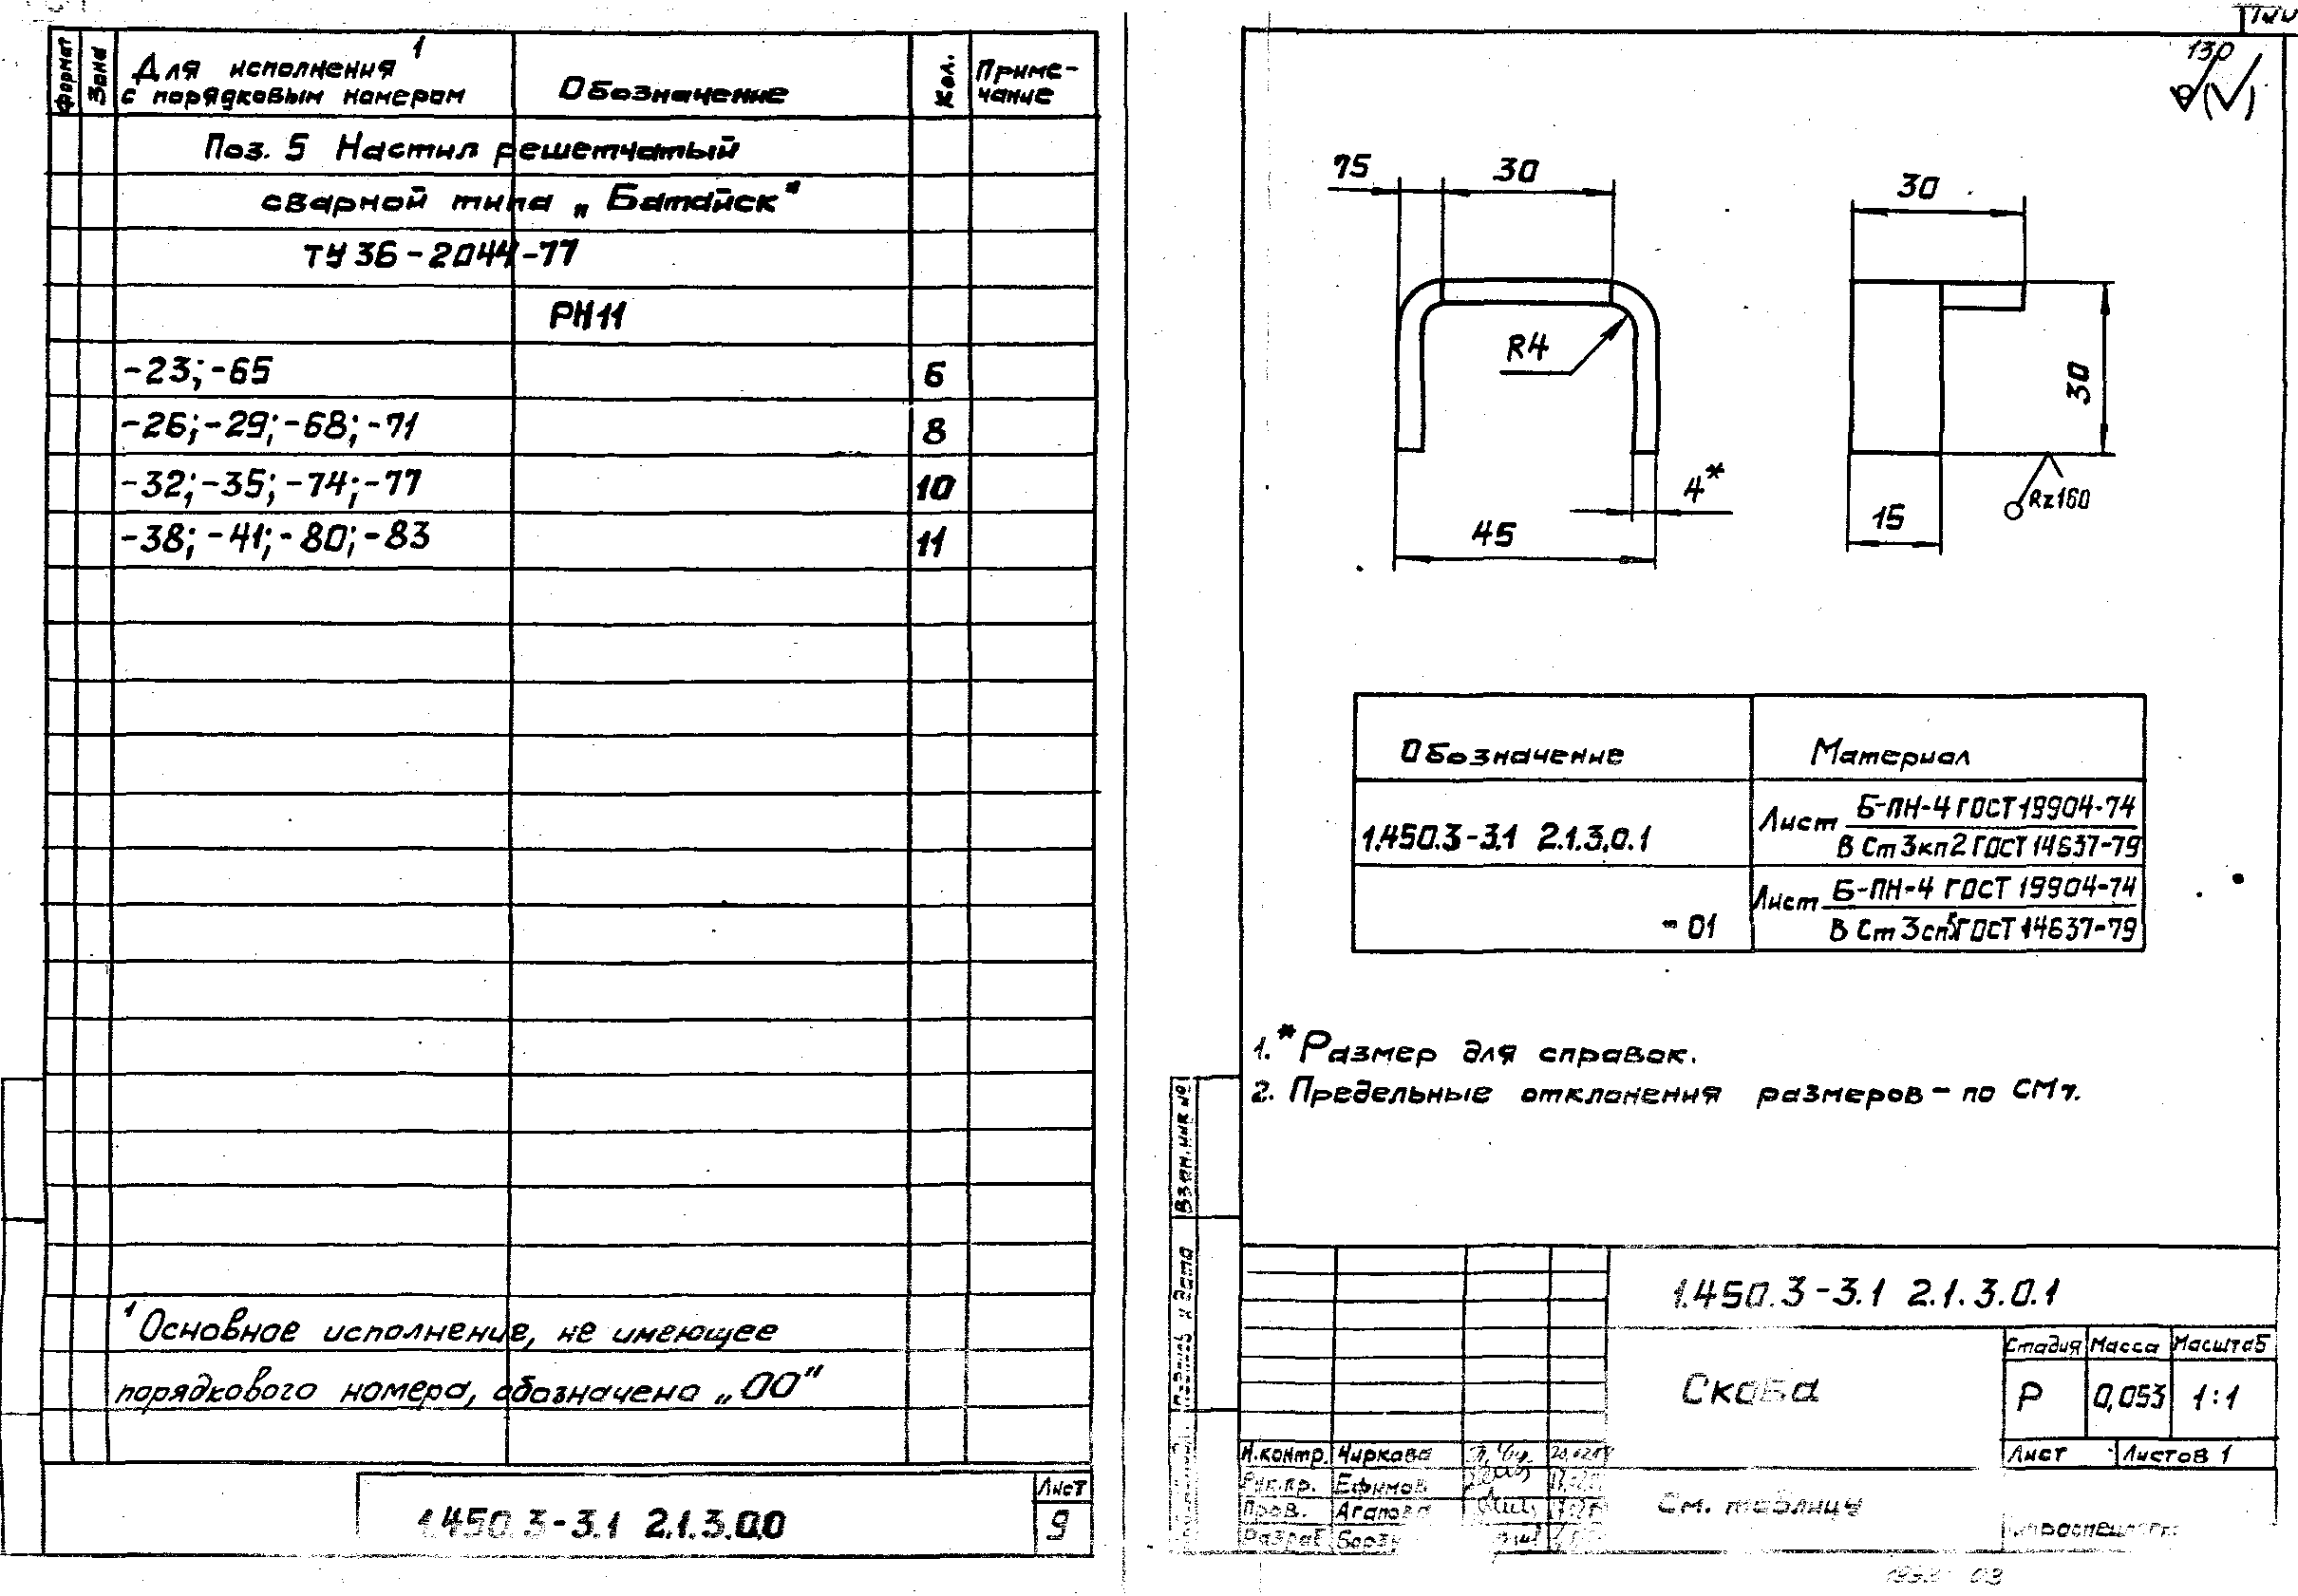 Формат
Зона
Для исполнения ¹
с порядковым номером
Обозначение
Кол.
Приме-
чание
Поз. 5 Настил решетчатый
сварной типа „Батайск"
ТУ 36-2044-77
РН11
-23; -65
6
-26; -29; -68; -71
8
-32; -35; -74; -77
10
-38; -41; -80; -83
11
¹ Основное исполнение, не имеющее
порядкового номера, обозначено „00"
1.450.3-3.1 2.1.3.0.0
Лист
9
130
(√)
75
30
R4
4*
45
30
30
15
Rz160
Обозначение
Материал
1.450.3-3.1 2.1.3.0.1
Лист
Б-ПН-4 ГОСТ 19904-74
В Ст 3кп2 ГОСТ 14637-79
- 01
Лист
Б-ПН-4 ГОСТ 19904-74
В Ст 3сп5 ГОСТ 14637-79
1. * Размер для справок.
2. Предельные отклонения размеров - по СМ7.
Взам. инв №
и дата
1.450.3-3.1 2.1.3.0.1
Скоба
Стадия
Масса
Масштаб
Р
0,053
1:1
Лист
Листов 1
Н.контр.
Чиркова
Рук.пр.
Ефимов
Пров.
Агапова
Разраб
См. таблицу